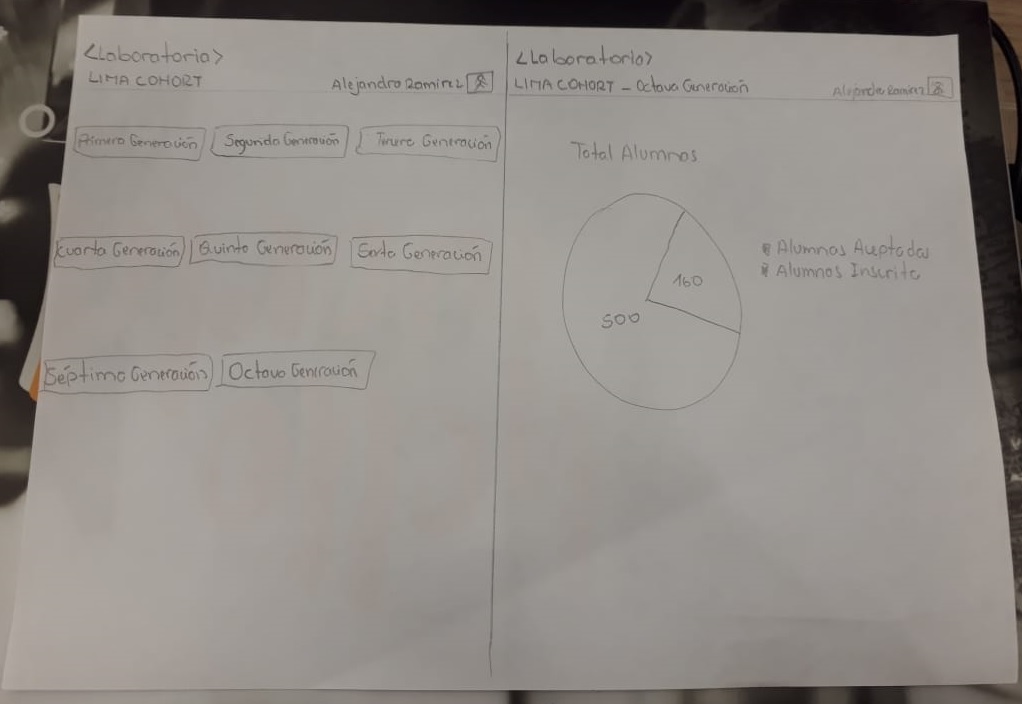 <Laboratoria>
LIMA COHORT
Alejandro Ramirez
Primera Generación
Segunda Generación
Tercera Generación
Cuarta Generación
Quinta Generación
Sexta Generación
Séptima Generación
Octava Generación
<Laboratoria>
LIMA COHORT - Octava Generación
Alejandro Ramirez
Total Alumnos
160
500
Alumnos Aceptados
Alumnos Inscrito